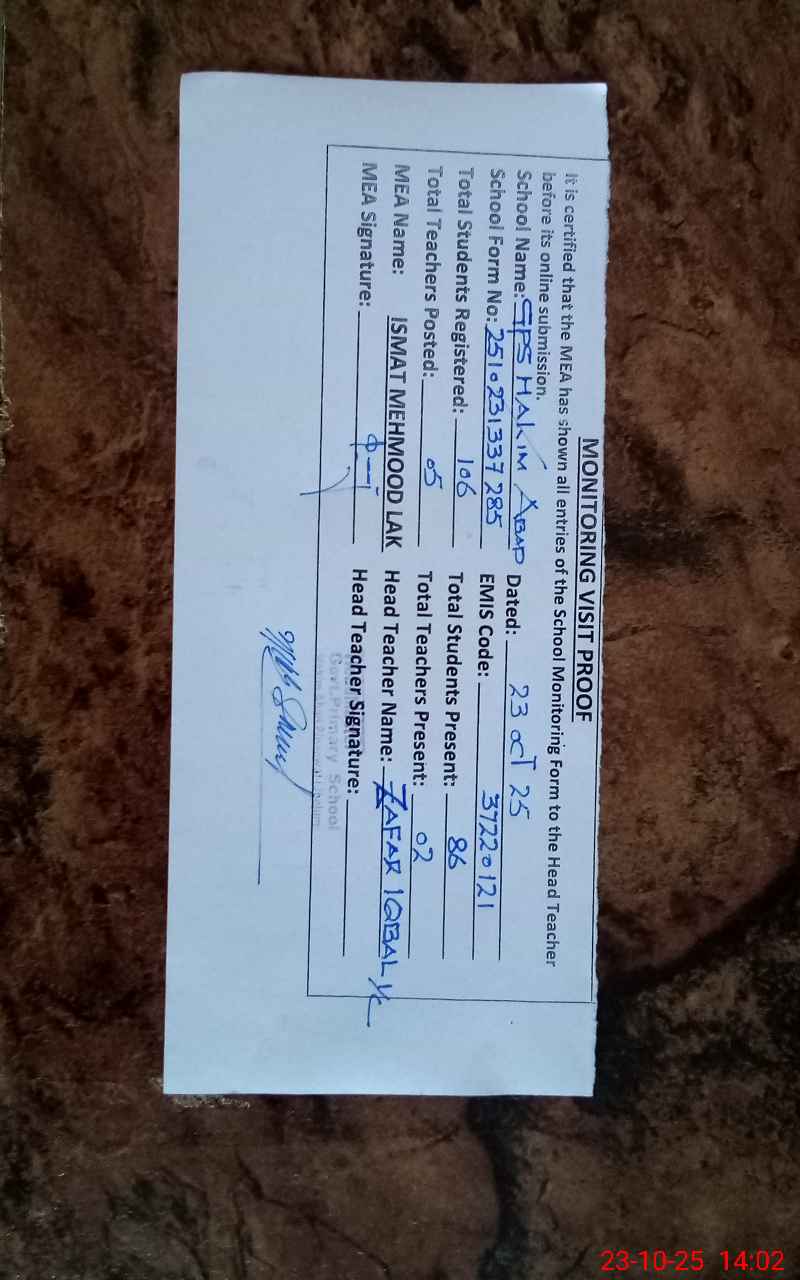 MONITORING VISIT PROOF
It is certified that the MEA has shown all entries of the School Monitoring Form to the Head Teacher
before its online submission.
School Name: GPS HAKIM ABAD Dated: 23 OCT 25
School Form No: 2510231337285 EMIS Code: 37220121
Total Students Registered: 106 Total Students Present: 86
Total Teachers Posted: 05 Total Teachers Present: 02
MEA Name: ISMAT MEHMOOD LAK Head Teacher Name: ZAFAR IQBAL I/C
MEA Signature: Head Teacher Signature:
Govt.Primary School
23-10-25 14:02